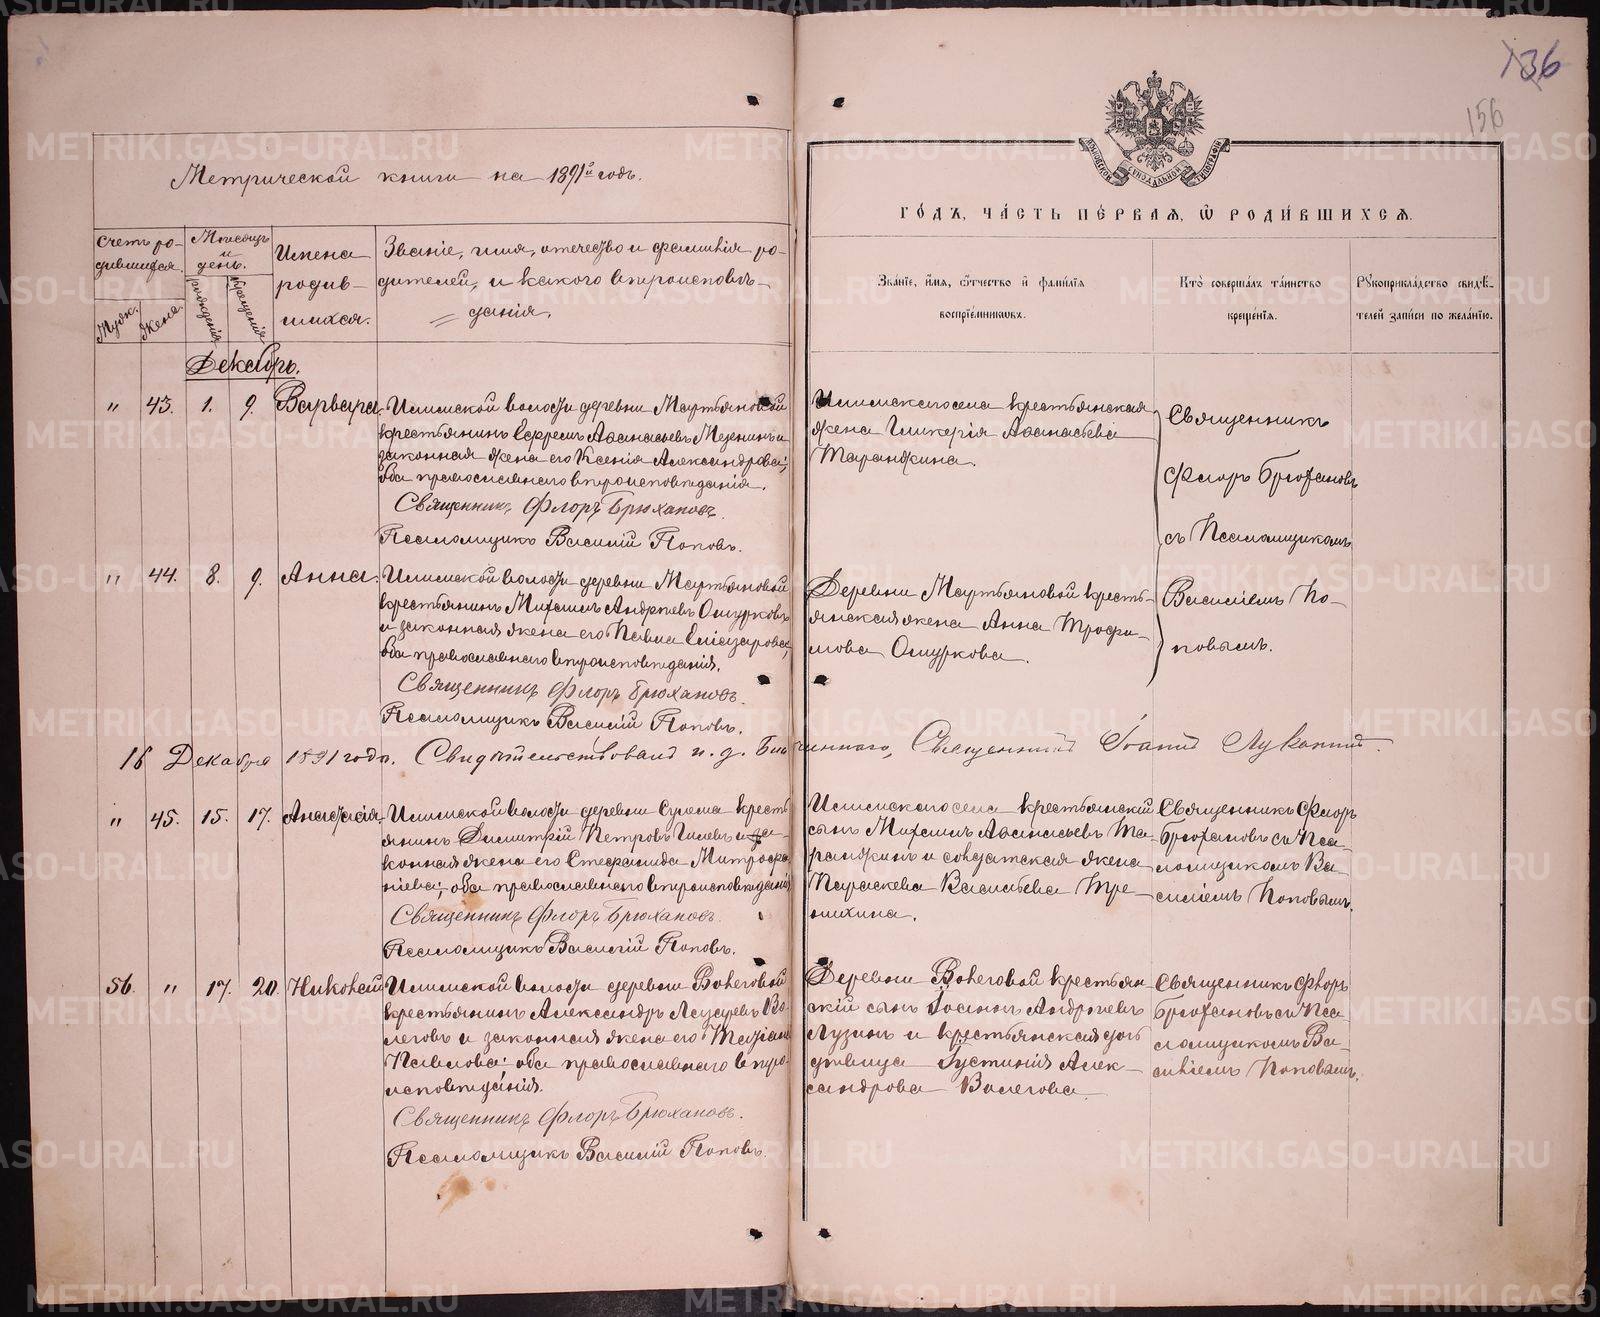 136
156
Метрической книги на 1891й годъ.
Московской Сѵнодальной Типографіи
Го́дъ, ча́сть пе́рваѧ, ѡ҆ роди́вшихсѧ.
Счетъ ро-
дившихся.
Муж.
Жене.
Мѣсяцъ
и
день.
рожденія
крещенія
Имена
родив-
шихся.
Званіе, имя, отечество и фамилія ро-
дителей, и какого вѣроисповѣ-
данія.
Зва́нїе, и҆́мѧ, ѻ҆́тчество и҆ фами́лїѧ
воспрїе́мникѡвъ.
Кто̀ соверша́лъ та́инство
креще́нїѧ.
Рꙋкоприкла́дство свидѣ́-
телей за́писи по жела́нїю.
Декабрь.
" 43. 1. 9. Варвара.
Илимской волости деревни Мартьяновой
крестьянинъ Ефремъ Аѳанасьевъ Мезенинъ и
законная жена его Ксенія Александрова;
оба православнаго вѣроисповѣданія.
Священникъ Флоръ Брюхановъ.
Псаломщикъ Василій Поповъ.
Илимскаго села крестьянская
жена Гликерія Аѳанасьева
Таранжина.
Священникъ
Флоръ Брюхановъ
съ Псаломщикомъ
" 44. 8. 9. Анна.
Илимской волости деревни Мартьяновой
крестьянинъ Михаилъ Андреевъ Ошурковъ
и законная жена его Павла Еліазарова,
оба православнаго вѣроисповѣданія.
Священникъ Флоръ Брюхановъ.
Псаломщикъ Василій Поповъ.
Деревни Мартьяновой кресть-
янская жена Анна Трофи-
мова Ошуркова.
Василіемъ По-
повымъ.
16 Декабря 1891 года. Свидѣтельствовалъ и. д. Благочиннаго, Священникъ Іоаннъ Луканинъ.
" 45. 15. 17. Анастасія.
Илимской волости деревни Сулема кресть-
янинъ Димитрій Петровъ Гилевъ и за-
конная жена его Стефанида Митрофа-
ніева; оба православнаго вѣроисповѣданія
Священникъ Флоръ Брюхановъ.
Псаломщикъ Василій Поповъ.
Илимскаго села крестьянскій
сынъ Михаилъ Аѳанасьевъ Та-
ранжинъ и солдатская жена
Параскева Васильева Тре-
нихина.
Священникъ Флоръ
Брюхановъ съ Пса-
ломщикомъ Ва-
силіемъ Поповымъ.
56. " 17. 20. Николай
Илимской волости деревни Волеговой
крестьянинъ Александръ Лазаревъ Во-
леговъ и законная жена его Татіана
Павлова; оба православнаго вѣро-
исповѣданія.
Священникъ Флоръ Брюхановъ.
Псаломщикъ Василій Поповъ.
Деревни Волеговой крестьян-
скій сынъ Іоаннъ Андреевъ
Лузинъ и крестьянская дочь
дѣвица Іустинія Алек-
сандрова Волегова.
Священникъ Флоръ
Брюхановъ съ Пса-
ломщикомъ Ва-
силіемъ Поповымъ.
METRIKI.GASO-URAL.RU